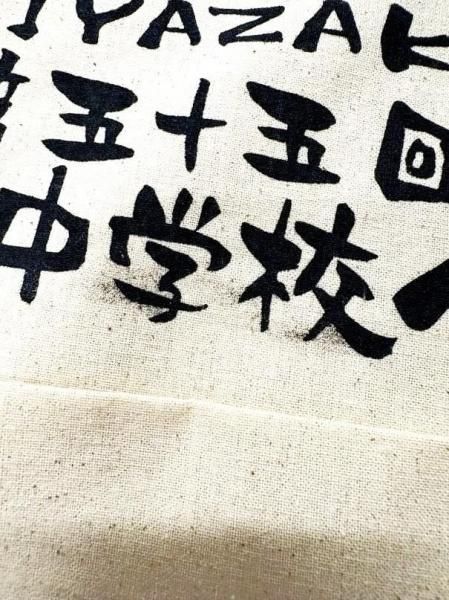 IYAZAK
第五十五回
中学校